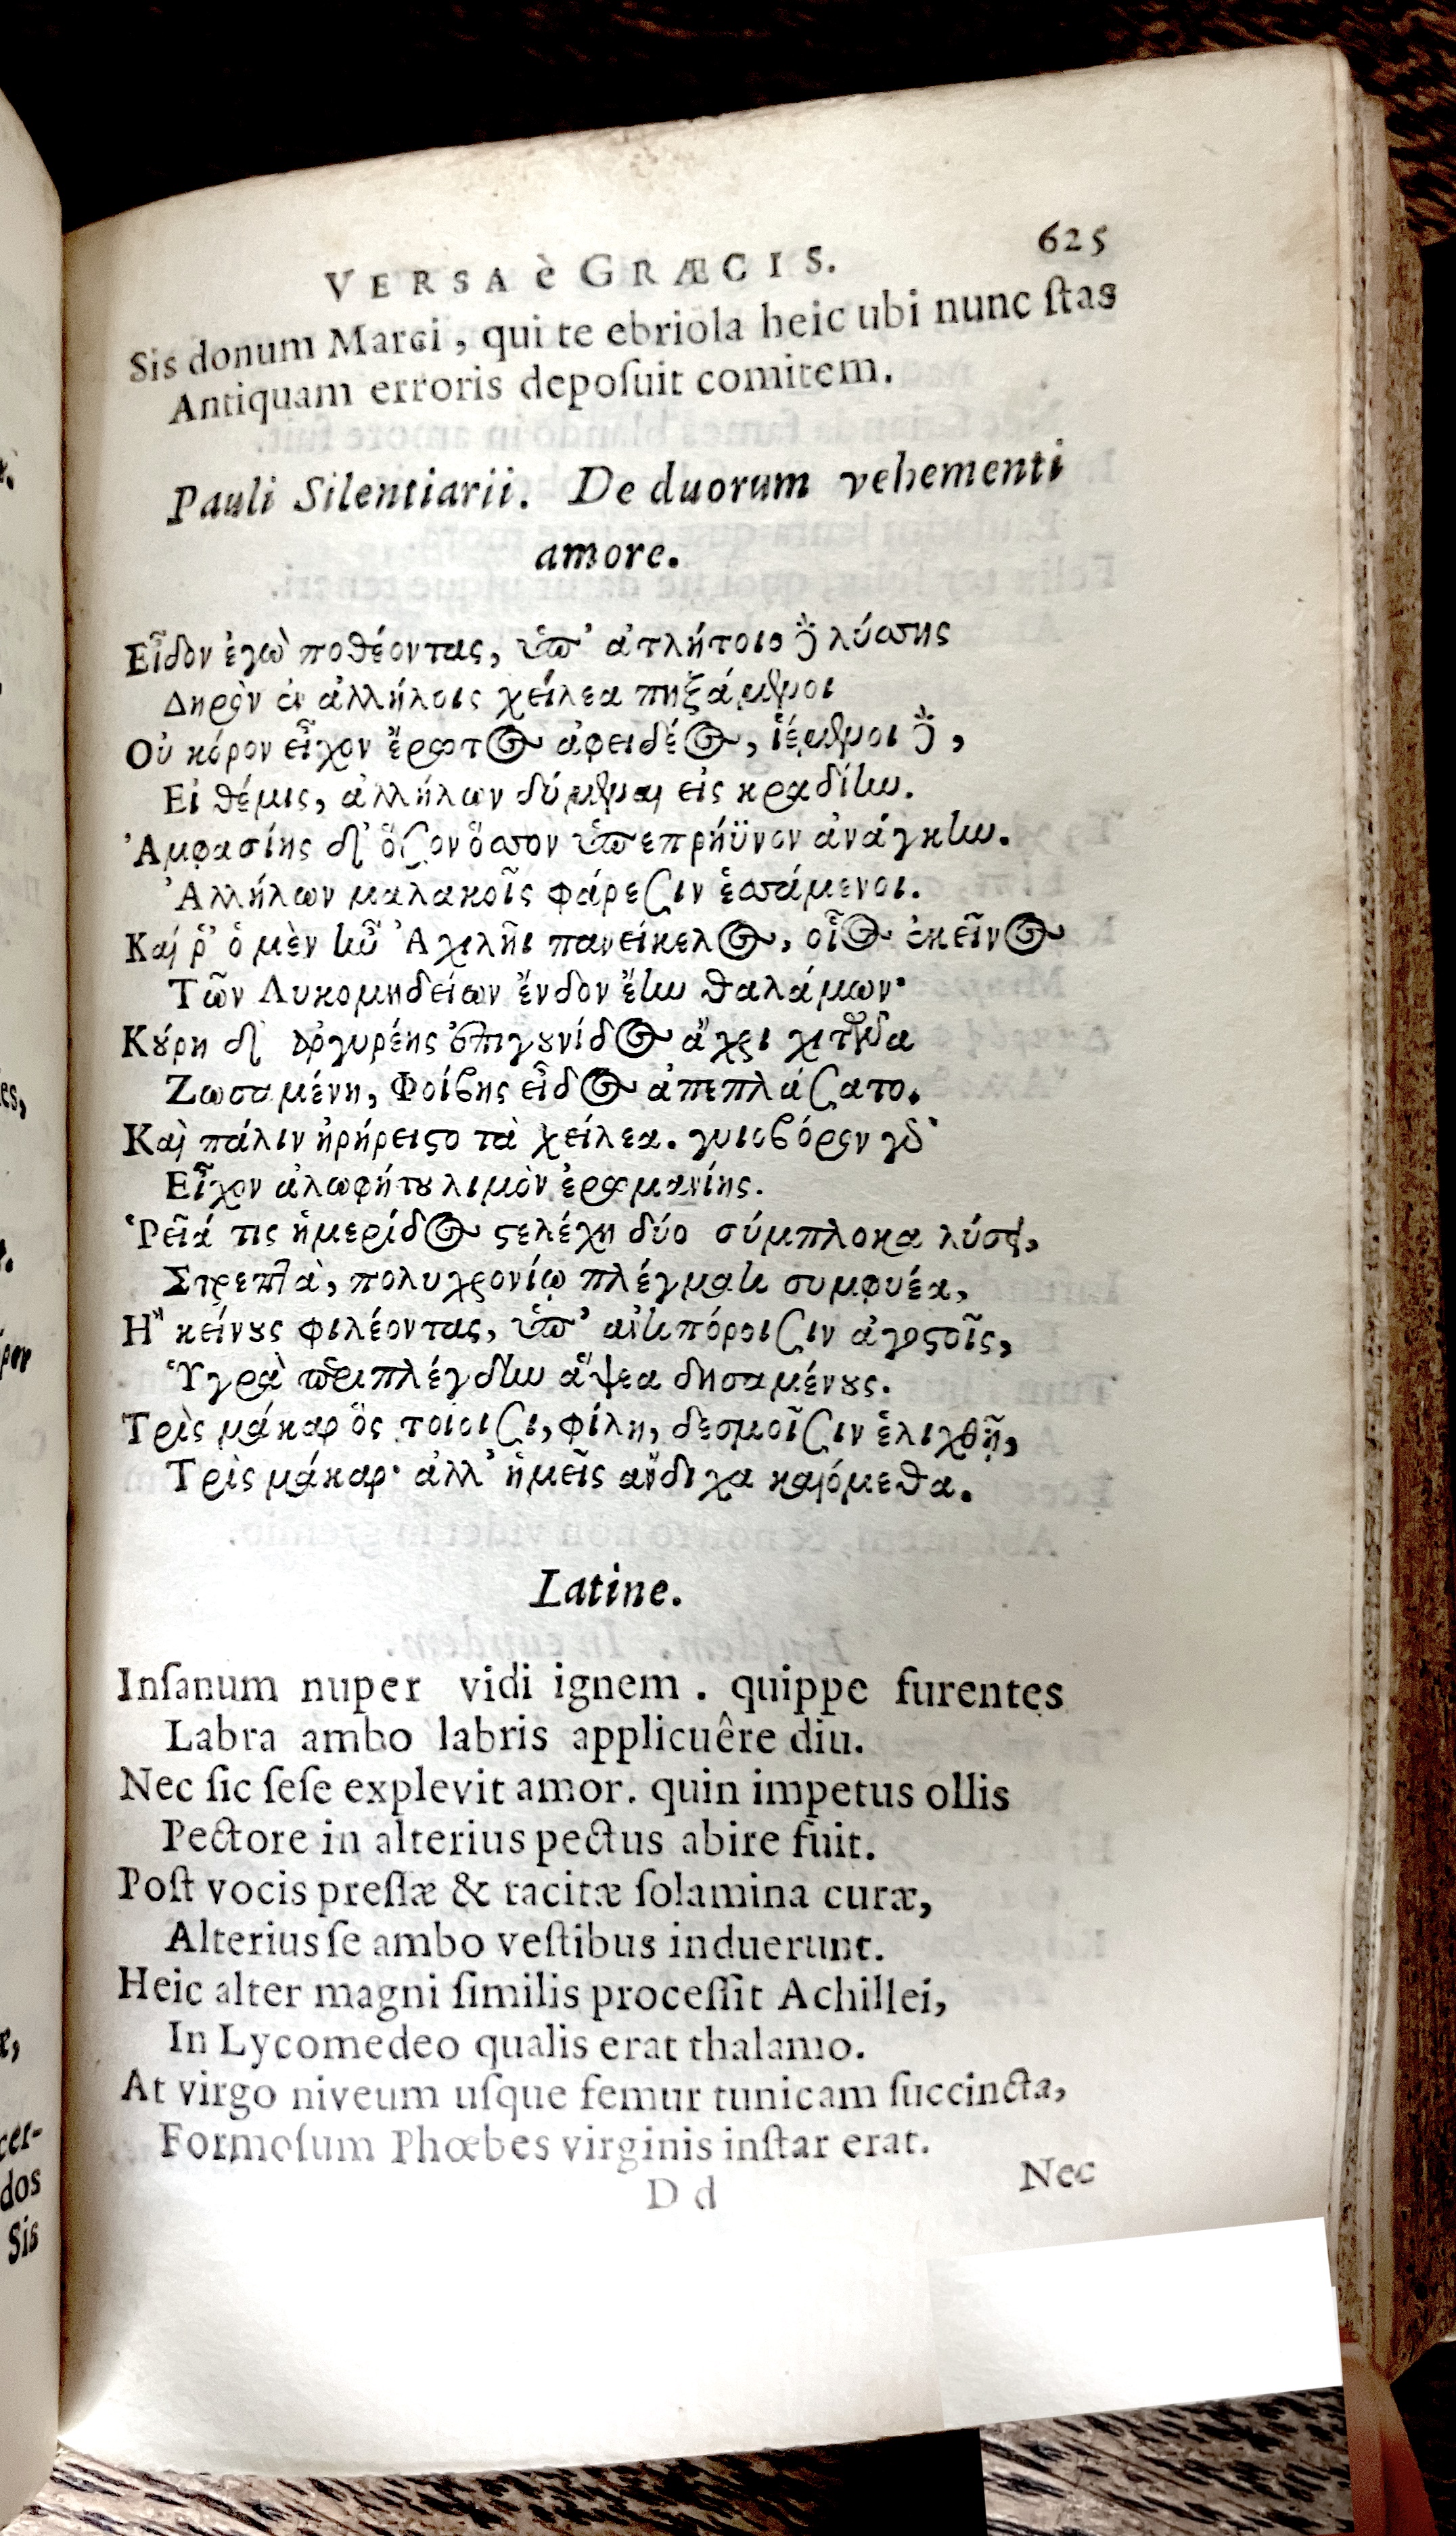 VERSA è GRÆCIS. 625
Sis donum Marci, qui te ebriola heic ubi nunc ſtas
Antiquam erroris depoſuit comitem.
Pauli Silentiarii. De duorum vehementi
amore.
Εἶδον ἐγὼ ποθέοντας, ὑπ' ἀτλήτοιο ϗ̀ λύσσης
Δηρὸν ἐν ἀλλήλοις χείλεα πηξάμενοι
Οὐ κόρον εἶχον ἔρωτος ἀφειδέος, ἱέμενοι ϗ̀,
Εἰ θέμις, ἀλλήλων δύμεναι εἰς κραδίην.
Ἀμφασίης δ' ὅσον ὅσσον ὑπεπρήϋνον ἀνάγκην.
Ἀλλήλων μαλακοῖς φάρεσιν ἑσσάμενοι.
Καί ῥ' ὁ μὲν ἦν Ἀχιλῆι πανείκελος, οἷος ἐκεῖνος
Τῶν Λυκομηδείων ἔνδον ἔην θαλάμων·
Κούρη δ' ἀργυρέης ἐπιγουνίδος ἄχρι χιτῶνα
Ζωσαμένη, Φοίβης εἶδος ἀπεπλάσατο.
Καὶ πάλιν ἠρήρειστο τὰ χείλεα. γυιοβόρον γὸ
Εἶχον ἀλωφήτου λιμὸν ἐρωμανίης.
Ῥεῖά τις ἡμερίδος στελέχη δύο σύμπλοκα λύσει,
Στρεπτὰ, πολυχρονίῳ πλέγματι συμφυέα,
Ἢ κείνους φιλέοντας, ὑπ' ἀντιπόροισιν ἀγοστοῖς,
Ὑγρὰ περιπλέγδην ἅψεα δησαμένους.
Τρὶς μάκαρ ὃς τοίοισι, φίλη, δεσμοῖσιν ἑλιχθῇ,
Τρὶς μάκαρ· ἀλλ' ἡμεῖς ἄνδιχα καιόμεθα.
Latine.
Inſanum nuper vidi ignem. quippe furentes
Labra ambo labris applicuêre diu.
Nec ſic ſeſe explevit amor. quin impetus ollis
Pectore in alterius pectus abire fuit.
Poſt vocis preſſæ & tacitæ ſolamina curæ,
Alterius ſe ambo veſtibus induerunt.
Heic alter magni ſimilis proceſſit Achillei,
In Lycomedeo qualis erat thalamo.
At virgo niveum uſque femur tunicam ſuccincta,
Formoſum Phœbes virginis inſtar erat.
D d Nec
cer-
dos
Sis